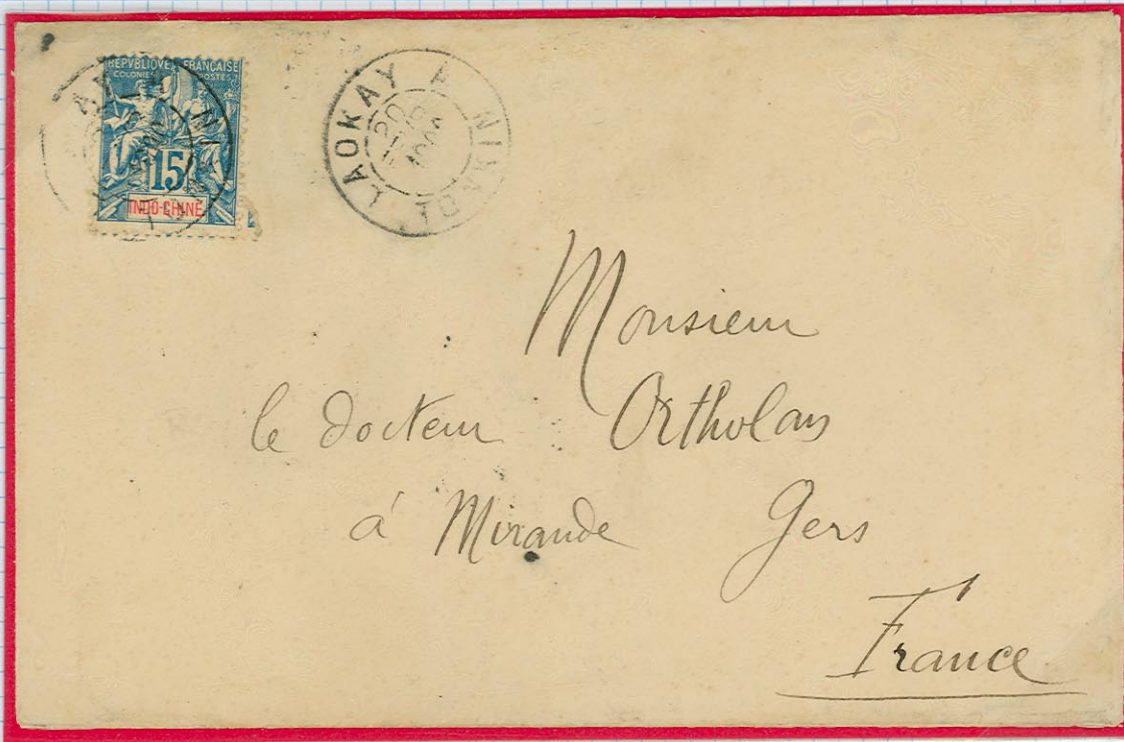 REPVBLIQVE FRANÇAISE
COLONIES POSTES
15
INDO-CHINE
LAOKAY A
20
Monsieur
le docteur Ortholan
à Mirande Gers
France